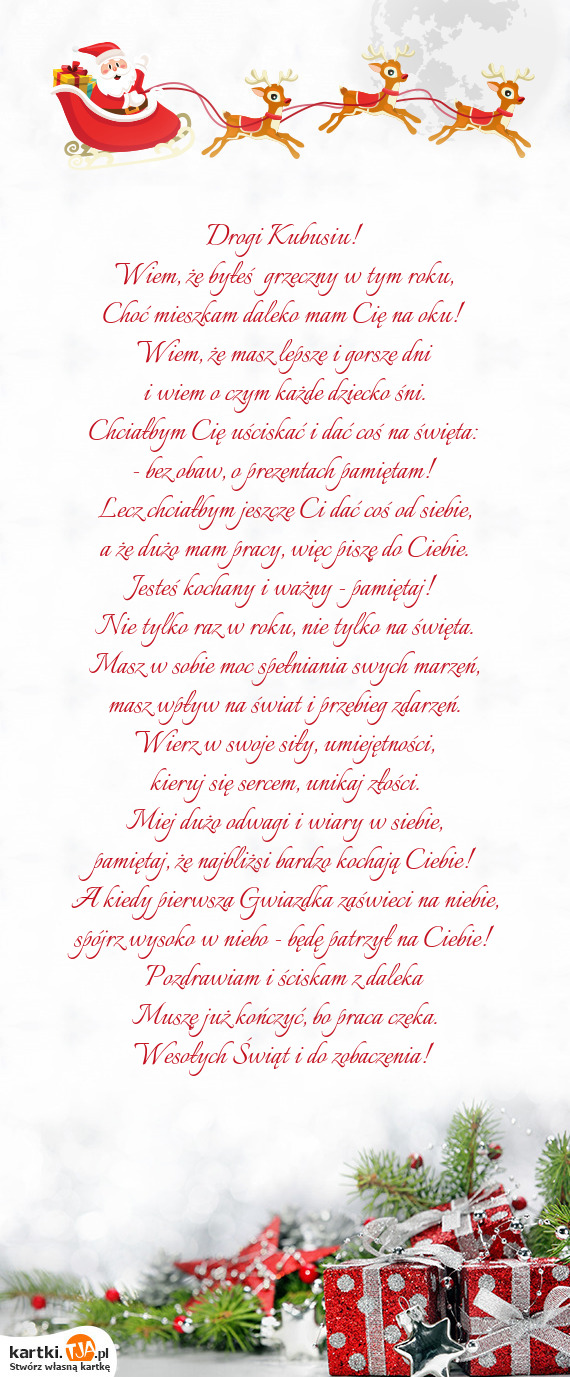 Drogi Kubusiu!
Wiem, że byłeś grzeczny w tym roku,
Choć mieszkam daleko mam Cię na oku!
Wiem, że masz lepsze i gorsze dni
i wiem o czym każde dziecko śni.
Chciałbym Cię uściskać i dać coś na święta:
- bez obaw, o prezentach pamiętam!
Lecz chciałbym jeszcze Ci dać coś od siebie,
a że dużo mam pracy, więc piszę do Ciebie.
Jesteś kochany i ważny - pamiętaj!
Nie tylko raz w roku, nie tylko na święta.
Masz w sobie moc spełniania swych marzeń,
masz wpływ na świat i przebieg zdarzeń.
Wierz w swoje siły, umiejętności,
kieruj się sercem, unikaj złości.
Miej dużo odwagi i wiary w siebie,
pamiętaj, że najbliżsi bardzo kochają Ciebie!
A kiedy pierwsza Gwiazdka zaświeci na niebie,
spójrz wysoko w niebo - będę patrzył na Ciebie!
Pozdrawiam i ściskam z daleka
Muszę już kończyć, bo praca czeka.
Wesołych Świąt i do zobaczenia!
kartki.TJA.pl
Stwórz własną kartkę